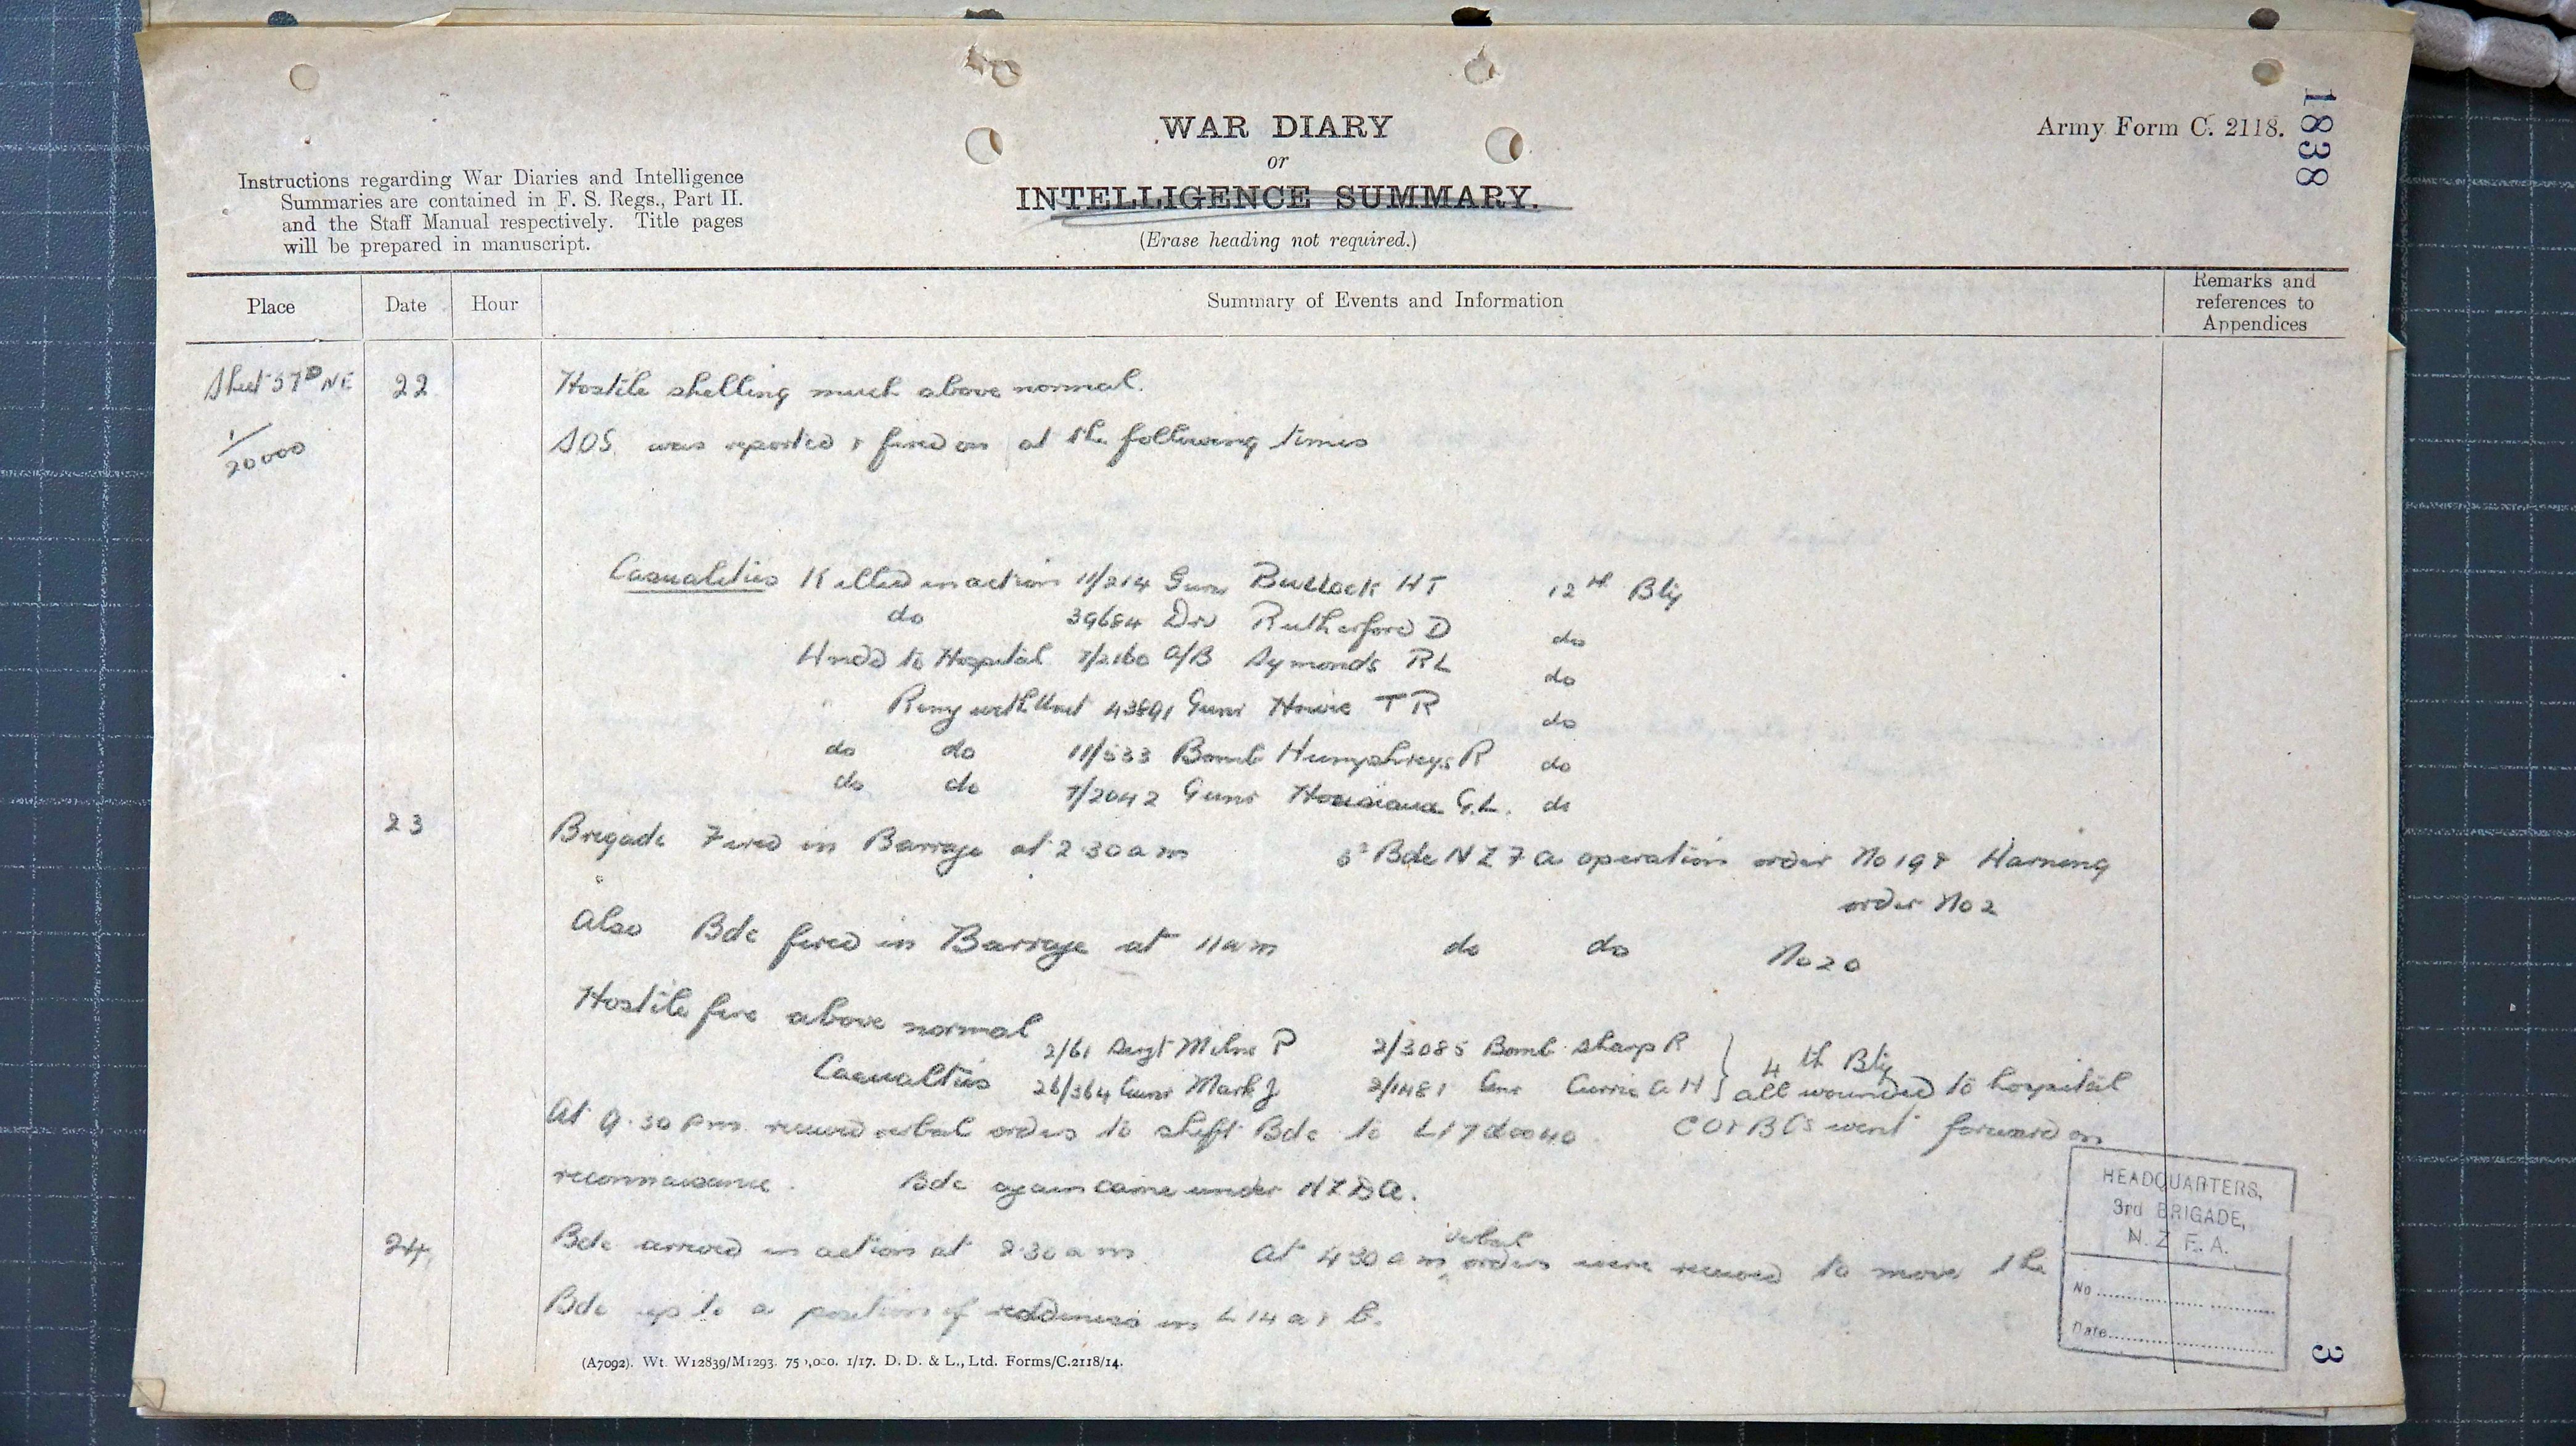 1838
WAR DIARY
or
INTELLIGENCE SUMMARY.
(Erase heading not required.)
Army Form C. 2118.
Instructions regarding War Diaries and Intelligence
Summaries are contained in F. S. Regs., Part II.
and the Staff Manual respectively. Title pages
will be prepared in manuscript.
Place Date Hour Summary of Events and Information Remarks and references to Appendices
Sheet 57D NE 22 Hostile shelling much above normal.
1/20000 SOS. was reported & fired on at the following times
Casualities Killed in action 11/214 Gunr Bullock HT 12th Bty
do 39684 Dvr Rutherford D do
Wnded to Hospital 7/2160 a/B Symonds RL do
" Remg with Unit 43891 Gunr Howie T R do
do do 11/533 Bomb Humphreys R do
do do 7/2042 Gunr G.L. do
23 Brigade Fired in Barrage at 2.30 am 3rd Bde NZFA operation order No 198 Warning
order No 2
Also Bde fired in Barrage at 11 am do do No 20
Hostile fire above normal
2/61 Sergt Milne P 2/3085 Bomb Sharp R } 4th Bty
Casualties 26/364 Gunr Mark J 2/1481 Gnr Currie A H } all wounded to hospital
At 9.30 pm. received verbal orders to shift Bde to L17d0040. CO & BCs went forward on
reconnaisance. Bde again came under NZDA.
24. Bde arrived in action at 2.30 am At 430 am verbal orders were received to move the
Bde up to a position of readiness in L14 a & b.
HEADQUARTERS,
3rd BRIGADE,
N. Z. F. A.
No
Date
(A7092). Wt. W12839/M1293. 75 ,000. 1/17. D. D. & L., Ltd. Forms/C.2118/14.
3